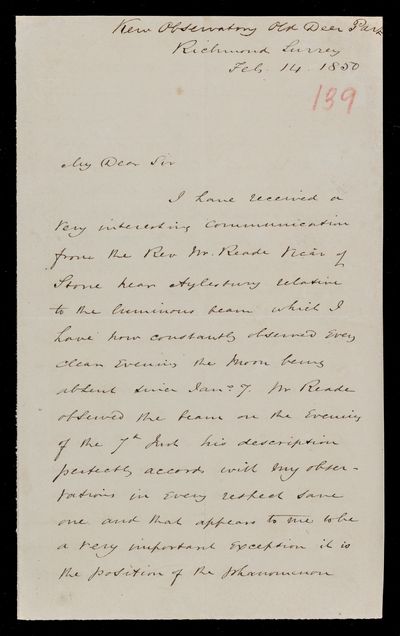 Kew Observatory Old Deer Park
Richmond Surrey
Feb. 14. 1850
139
My Dear Sir
I have received a
very interesting communication
from the Rev Mr. Reade Vicar of
Stone near Aylesbury relative
to the luminous beam which I
have now constantly observed every
clear evening the Moon being
absent since Jany 7. Mr Reade
observed the beam on the Evening
of the 7th Inst his description
perfectly accords with my obser-
vations in every respect save
one and that appears to me to be
a very important exception it is
the position of the phænomenon